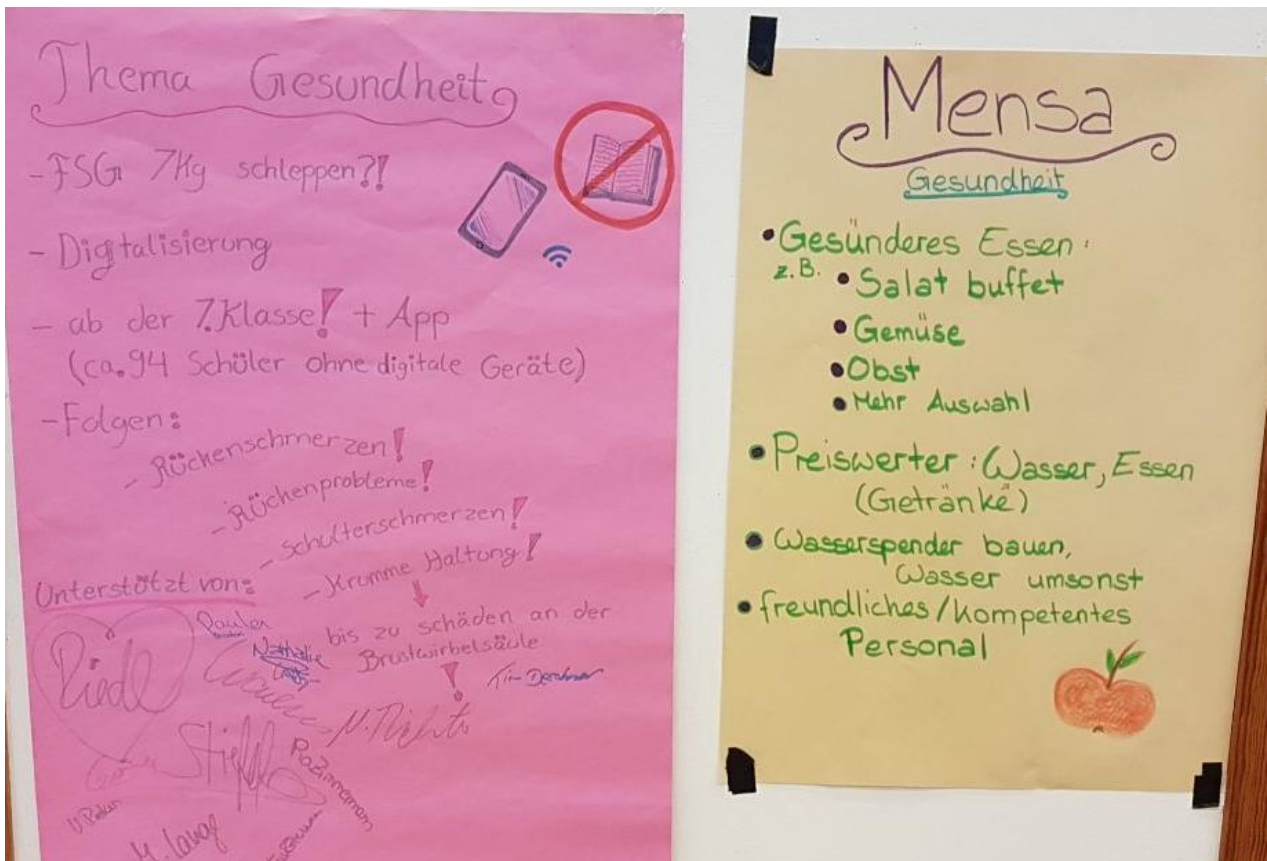 Thema Gesundheit
- FSG 7Kg schleppen?!
- Digitalisierung
- ab der 7.Klasse! + App
(ca.94 Schüler ohne digitale Geräte)
- Folgen:
- Rückenschmerzen!
- Rückenprobleme!
- Schulterschmerzen!
- Krumme Haltung!
bis zu schäden an der
Brustwirbelsäule
!
Unterstützt von:
Riedl
Nathalie
M. Lang
Mensa
Gesundheit
• Gesünderes Essen:
z.B. • Salat buffet
• Gemüse
• Obst
• Mehr Auswahl
• Preiswerter: Wasser, Essen
(Getränke)
• Wasserspender bauen,
Wasser umsonst
• freundliches/Kompetentes
Personal